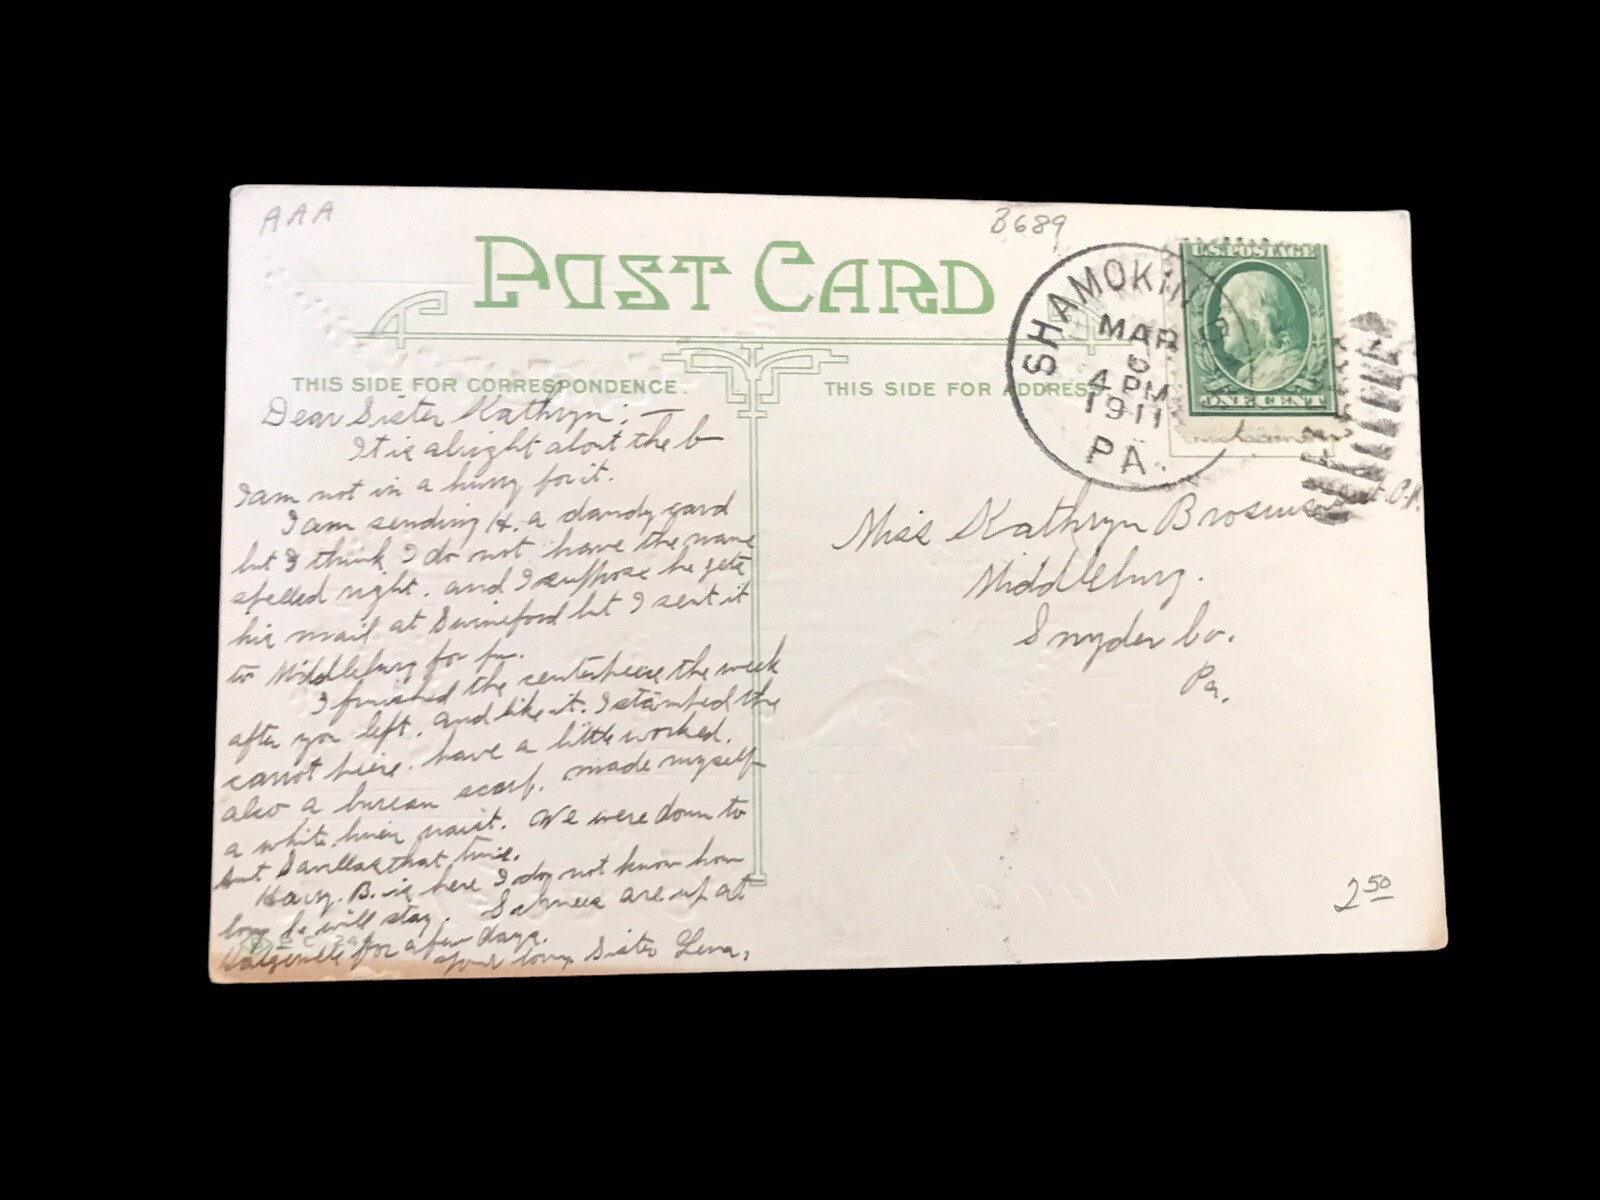 AAA
B689
POST CARD
SHAMOKIN
MAR
4 PM
1911
PA.
U.S. POSTAGE
ONE CENT
THIS SIDE FOR CORRESPONDENCE.
THIS SIDE FOR ADDRESS
Dear Sister Kathryn; —
It is alright about the b—
I am not in a hurry for it.
I am sending H. a dandy card
but I think I do not have the name
spelled right. and I suppose he gets
his mail at Swineford but I sent it
to Middleburg for fun.
I finished the centerpiece the week
after you left. and like it. I stamped the
carrot have a little worked.
also a bureau scarf. made myself
a white linen waist. We were down to
Aunt Savillas that time.
Harry. B. is here I do not know how
long he will stay. are up at
for a few days.
Your loving Sister Lena,
Miss Kathryn
Middleburg.
Snyder Co.
Pa.
2 50